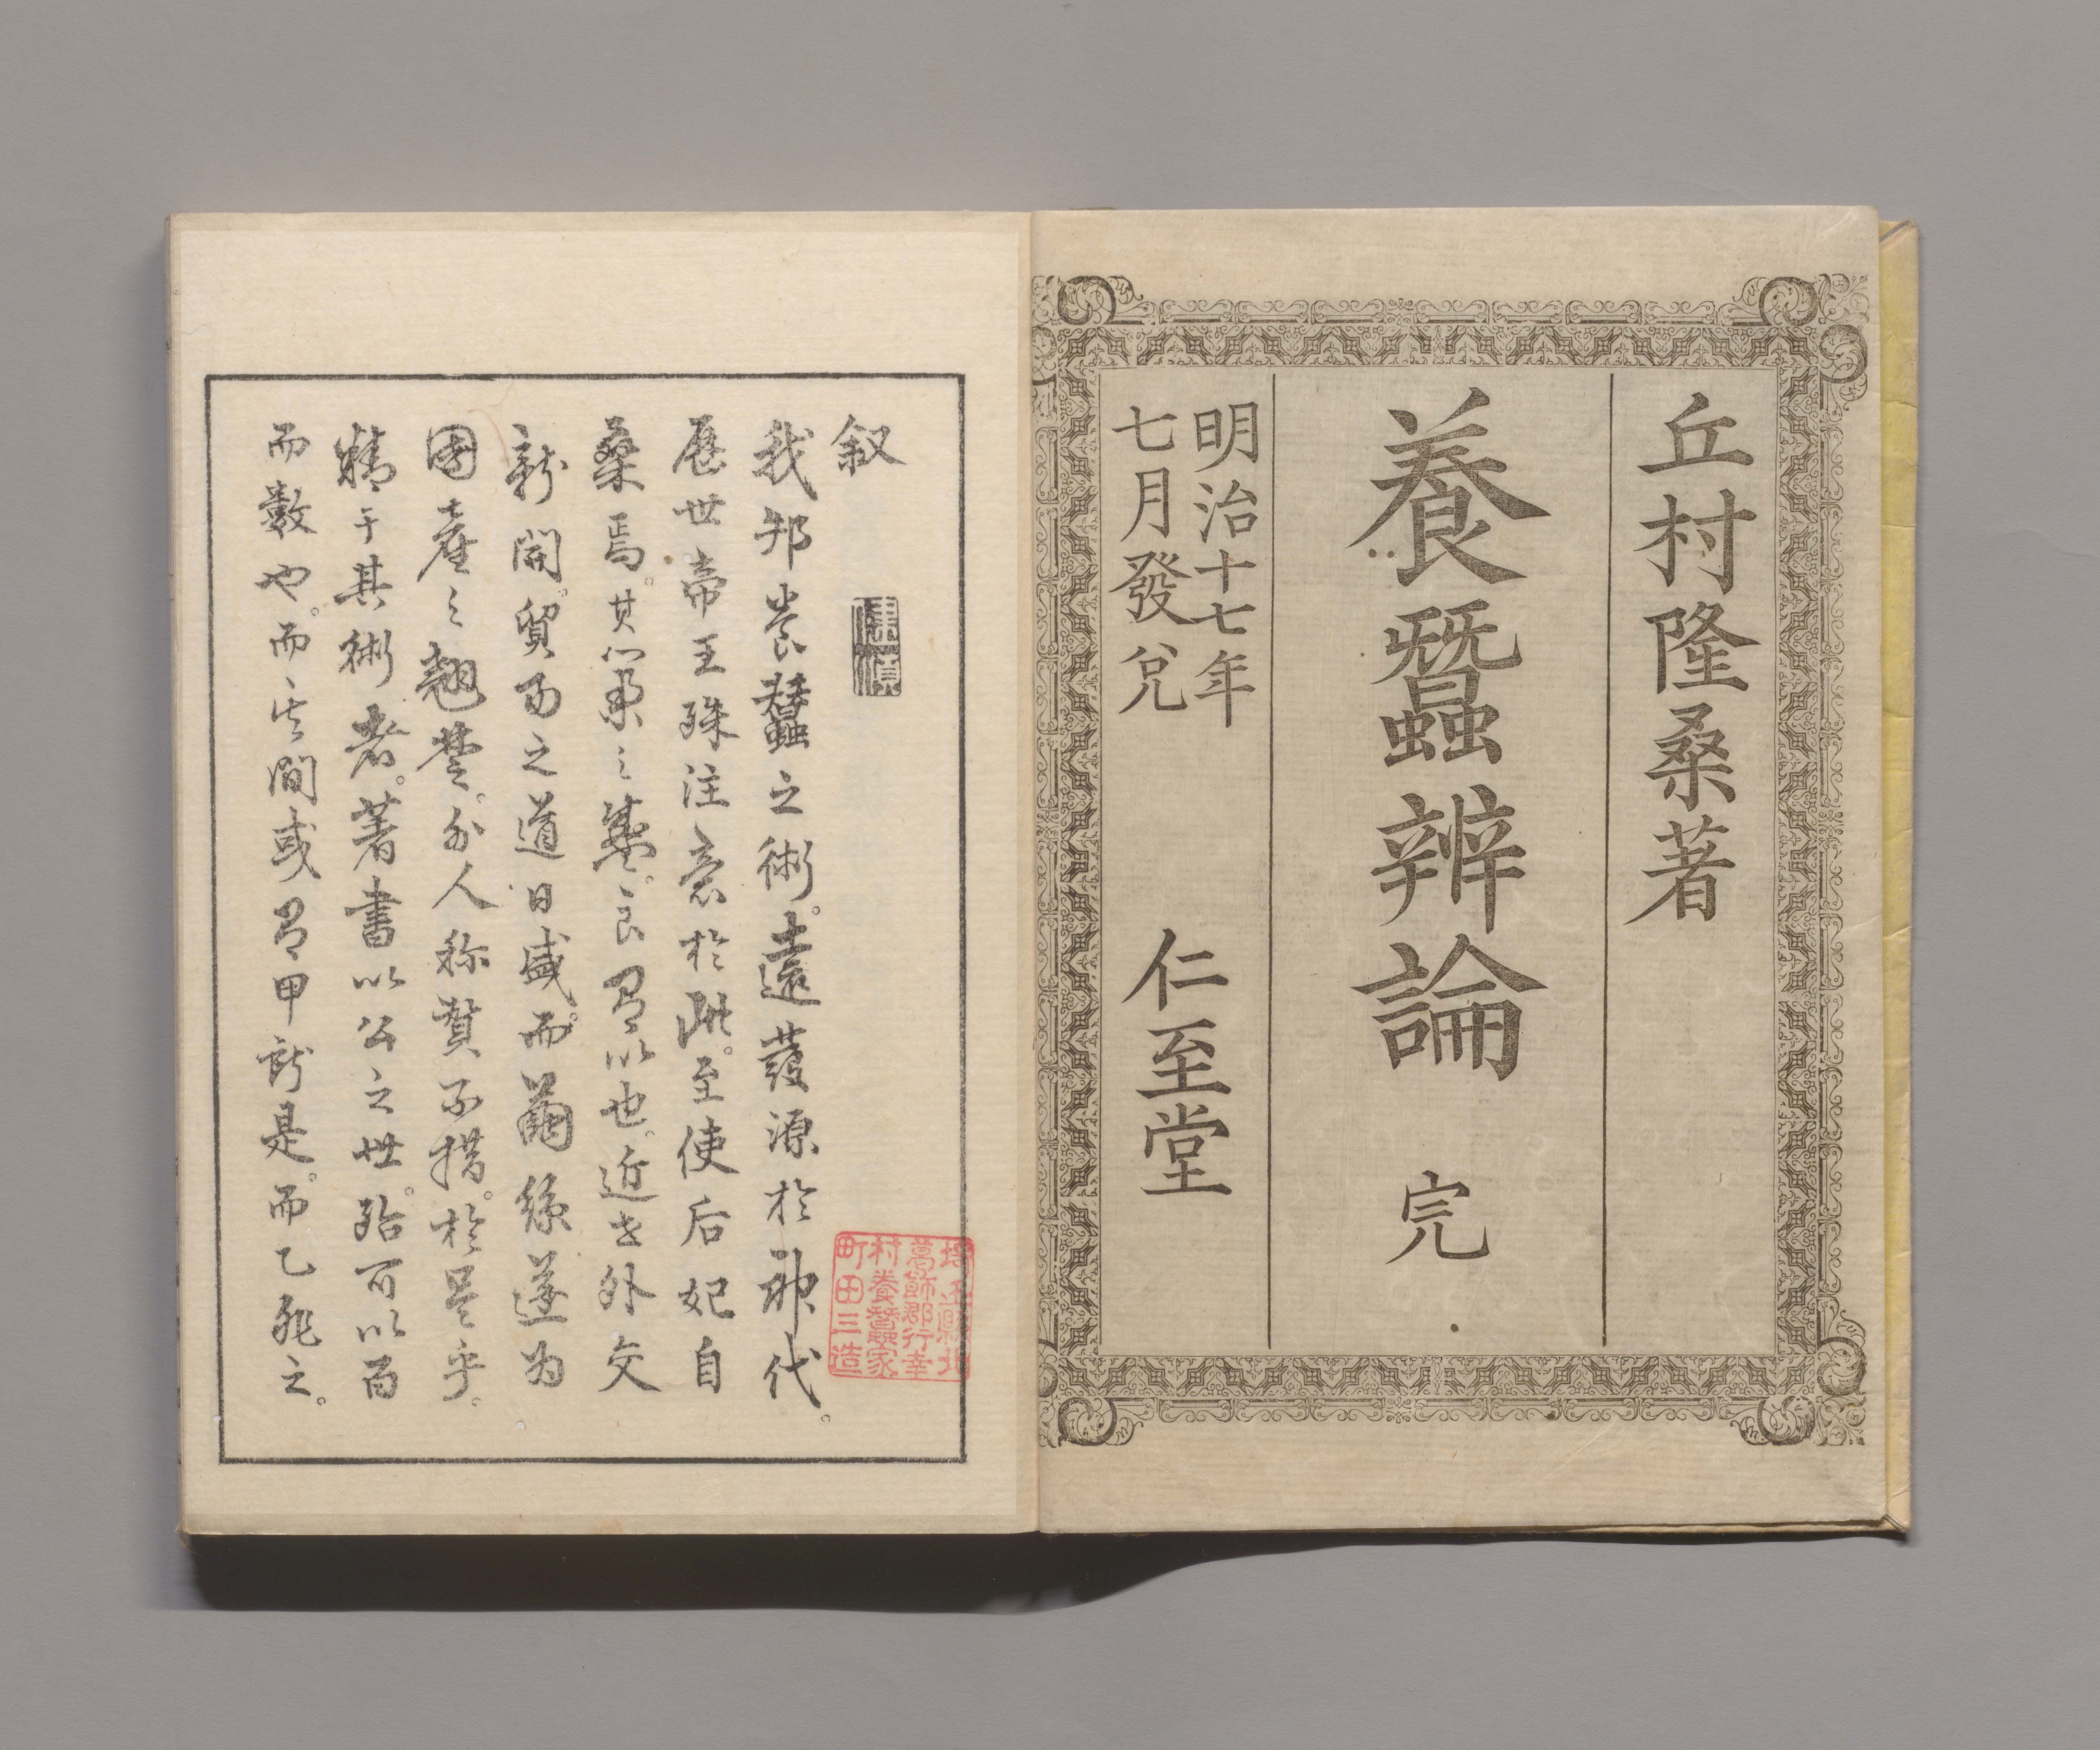 丘村隆桑著
養蠶辨論 完
明治十七年
七月發兌
仁至堂
叙
我邦養蠶之術。遠發源於神代。
歷世帝王殊注意於此。至使后妃自
桑焉。其業之盛。良有以也。近世外交
新開。貿易之道日盛。而繭絲遂为
國產之翹楚。外人称賛不措。於是乎。
精于其術者。著書以公之世。殆可以百
而數也。而其間或有甲説是。而乙非之。
埼玉縣北
葛飾郡行幸
村養蠶家
町田三造